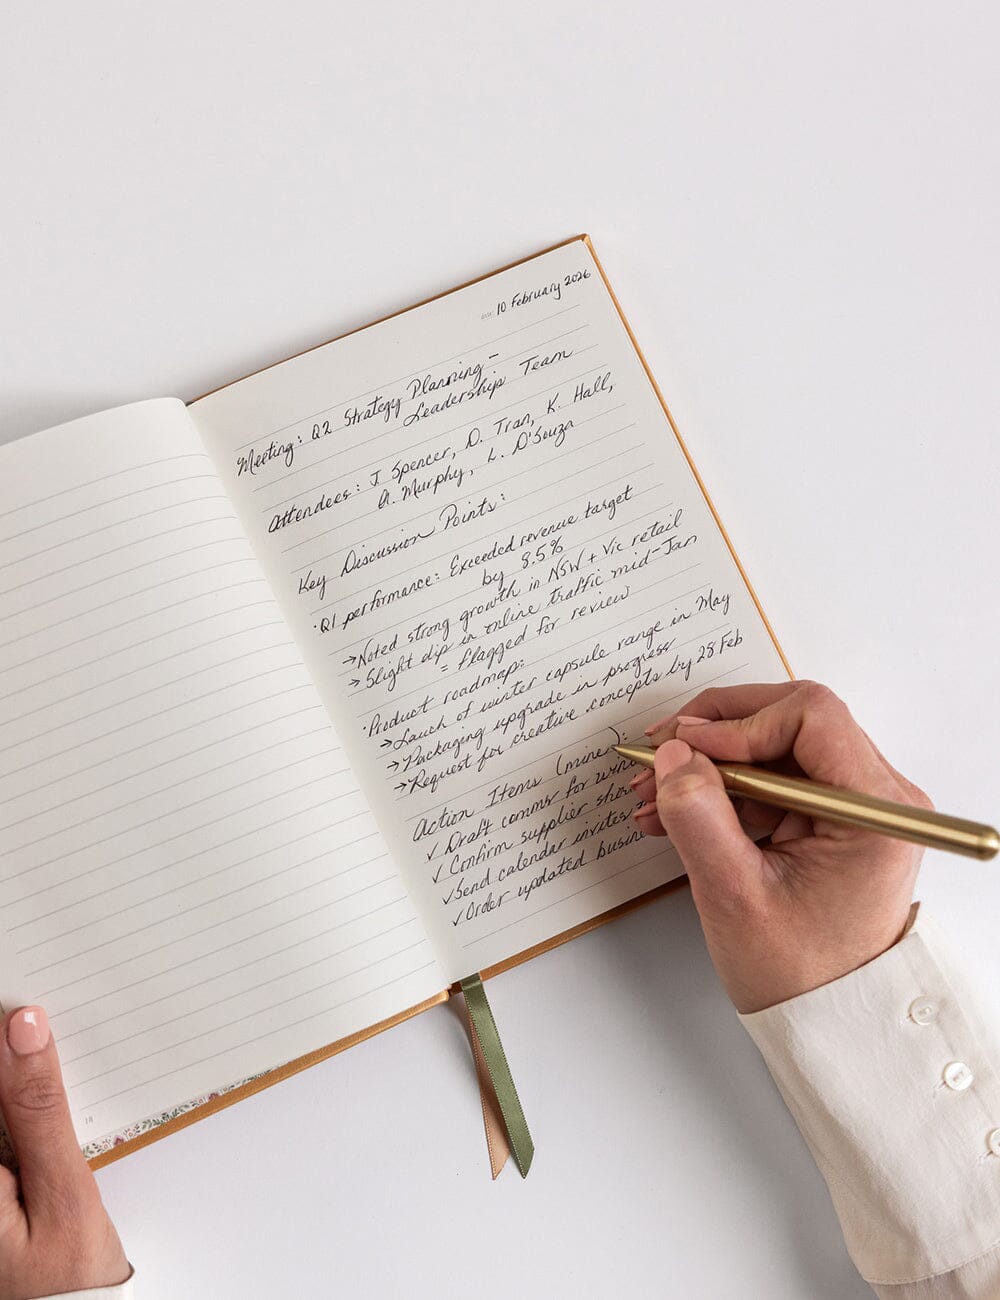 DATE: 10 February 2026
Meeting: Q2 Strategy Planning –
Leadership Team
Attendees: J Spencer, D. Tran, K. Hall,
A. Murphy, L. D'Souza
Key Discussion Points:
· Q1 performance: Exceeded revenue target
by 8.5%
→ Noted strong growth in NSW + Vic retail
→ Slight dip in online traffic mid-Jan
= flagged for review
· Product roadmap:
→ Lauch of winter capsule range in May
→ Packaging upgrade in progress
→ Request for creative concepts by 28 Feb
Action Items (mine):
✓ Draft comms for
✓ Confirm supplier
✓ Send calendar invites
✓ Order updated